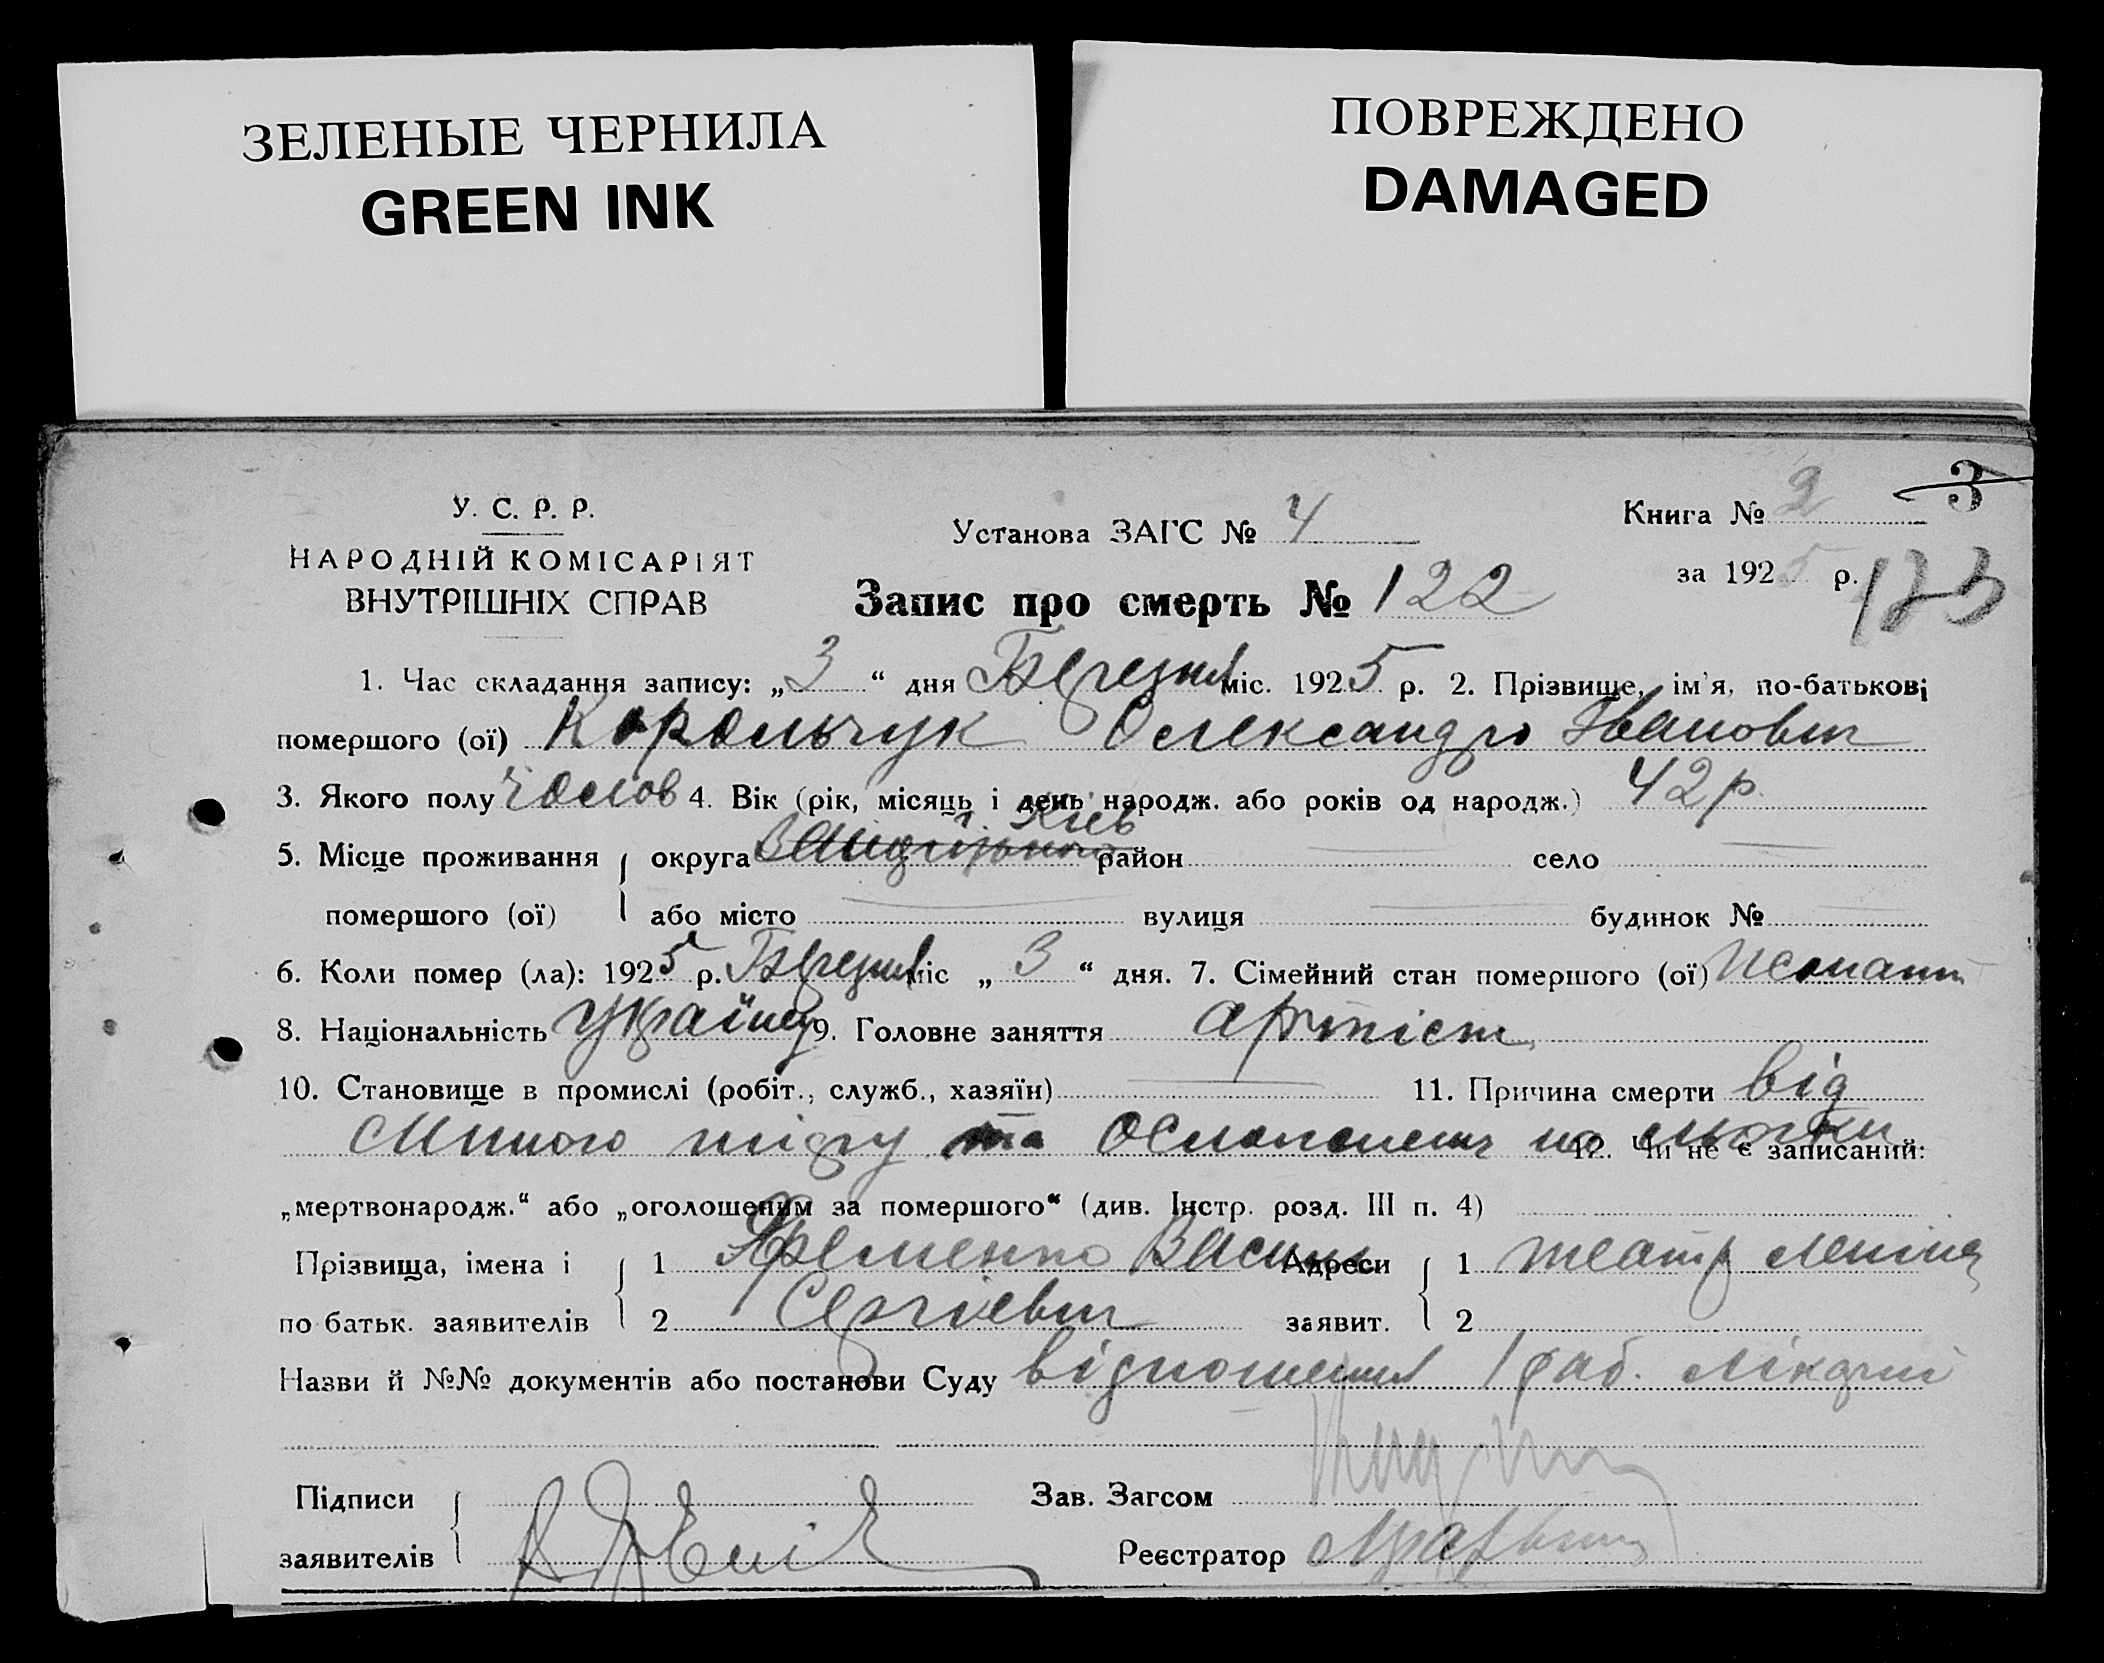 ЗЕЛЕНЫЕ ЧЕРНИЛА
GREEN INK
ПОВРЕЖДЕНО
DAMAGED
У. С. Р. Р.
НАРОДНІЙ КОМІСАРІЯТ
ВНУТРІШНІХ СПРАВ
Установа ЗАГС № 4
Запис про смерть № 122
Книга № 2 3
за 1925 р. 123
1. Час складання запису: „3“ дня Березня міс. 1925 р. 2. Прізвище, ім'я, по-батькові
помершого (ої) Корольчук Олександр Іванович
3. Якого полу чолов 4. Вік (рік, місяць і день народж. або років од народж.) 42 р
г. Київ
5. Місце проживання округа район село
помершого (ої) або місто вулиця будинок №
6. Коли помер (ла): 1925 р. Березня міс „3“ дня. 7. Сімейний стан помершого (ої)
8. Національність Українець 9. Головне заняття артіст
10. Становище в промислі (робіт., служб., хазяїн) 11. Причина смерти від
та 12. Чи не є записаний:
„мертвонародж.“ або „оголошеним за помершого“ (див. Інстр. розд. III п. 4)
Прізвища, імена і 1 Яременко Василь Адреси 1 театр Леніна
по батьк. заявителів 2 Сергієвич заявит. 2
Назви й №№ документів або постанови Суду відношення 1 раб. лікарні
Підписи Зав. Загсом
заявителів Реєстратор